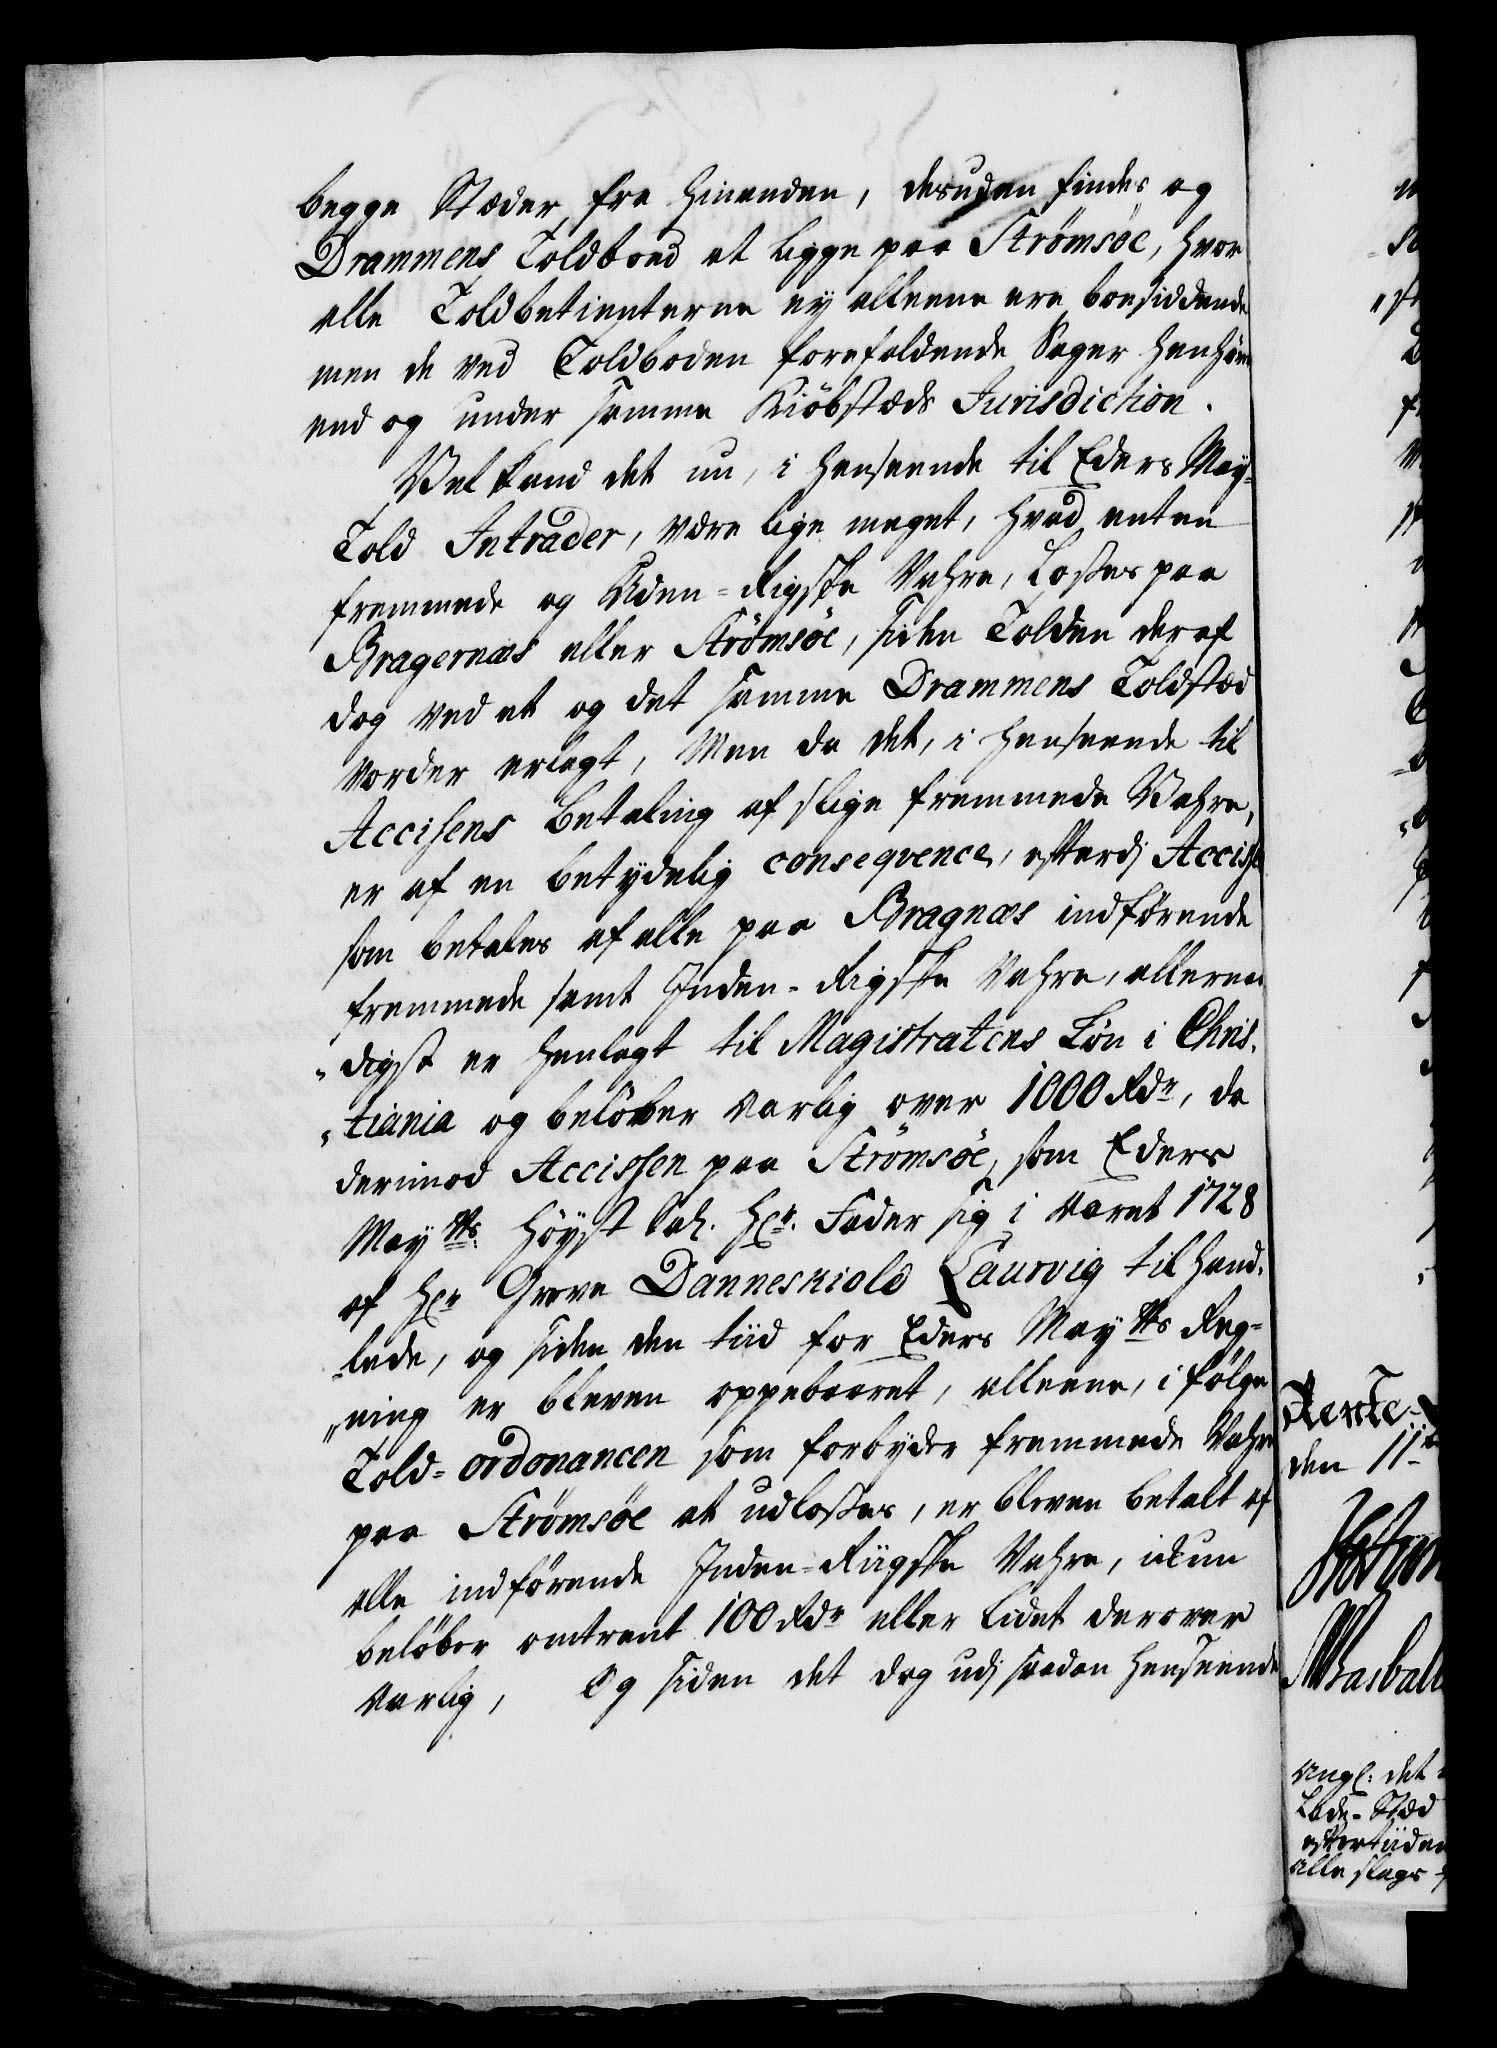 begge Stæder fra hinanden, desuden findes og
Drammens Toldboed at ligge paa Strømsøe, hvor
alle Toldbetienterne ey alleene ere boesiddende
men de ved Toldboden forefaldende Sager henhøre
end og under samme Kiöbstæds Jurisdiction.
Vel kand det nu, i henseende til Eders May.
Told Intrader, være lige meget, hvad enten
fremmede og Uden-Rigske Vahre, Losses paa
Bragernæs eller Strømsöe, siden Tolden deraf
dog ved et og det samme Drammens Toldstæd
vorder erlagt, Men da det, i henseende til
Accisens betaling af slige fremmede Vahre,
er af en betydelig conseqvence, efterdj Accise
som betales af alle paa Bragnæs indførende
fremmede samt Inden-Rigske Vahre, allernaa
„digst er henlagt til Magistratens Løn i Chris.
„tiania og beløber aarlig over 1000 Rdr, da
derimod Accissen paa Strömsöe, som Eders
Mayts Höyst Sal. Hr. Fader sig i Aaret 1728
af Hr Greve Danneskiold Laurvig tilhand.
„lede, og siden den tiid for Eders Mayts Reg-
„ning er bleven oppebaaret, alleene, i følge
Told-ordonancen som forbyder fremmede Vahre
paa Strømsøe at udlosses, er bleven betalt af
alle indførende Inden-Riigske Vahre, ickun
beløber omtrent 100 Rdr eller lidet derover
aarlig, Og siden det dog udj saadan Henseende
Rente-
den 11te
Angl: det
Lade-Stæd
eftertiiden
alle slags